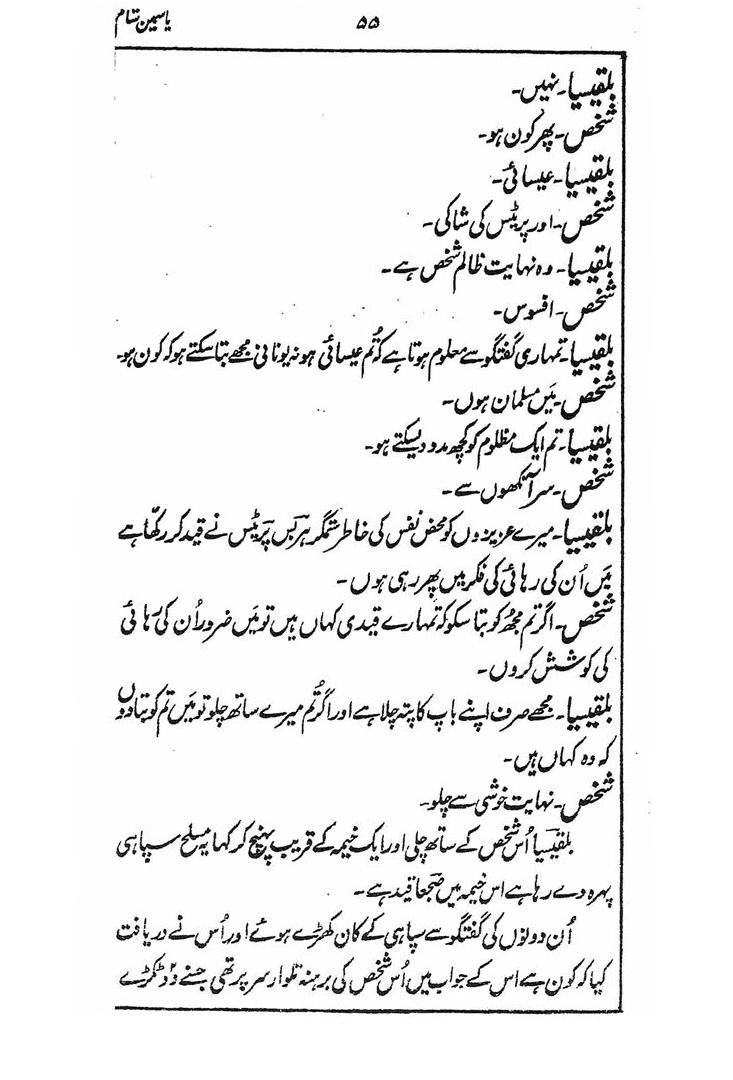 ۵۵ یاسمین شام
بلقیسیا۔ نہیں۔
شخص۔ پھر کون ہو۔
بلقیسیا۔ عیسائی۔
شخص۔ اور پریٹس کی شاکی۔
بلقیسیا۔ وہ نہایت ظالم شخص ہے۔
شخص۔ افسوس۔
بلقیسیا۔ تمہاری گفتگو سے معلوم ہوتا ہے کہ تُم عیسائی ہو نہ یونانی مجھے بتا سکتے ہو کہ کون ہو۔
شخص۔ مَیں مسلمان ہوں۔
بلقیسیا۔ تم ایک مظلوم کو کچھ مدد دیسکتے ہو۔
شخص۔ سر آنکھوں سے۔
بلقیسیا۔ میرے عزیزوں کو محض نفس کی خاطر ستمگر ہربیس پریٹس نے قید کر رکھّا ہے
مَیں اُن کی رہائی کی فکر میں پھر رہی ہوں۔
شخص۔ اگر تم مجھ کو بتا سکو کہ تمہارے قیدی کہاں ہیں تو مَیں ضرور اُن کی رہائی
کی کوشش کروں۔
بلقیسیا۔ مجھے صرف اپنے باپ کا پتہ چلا ہے اور اگر تُم میرے ساتھ چلو تو مَیں تم کو بتا دوں
کہ وہ کہاں ہیں۔
شخص۔ نہایت خوشی سے چلو۔
بلقیسیا اُس شخص کے ساتھ چلی اور ایک خیمہ کے قریب پہنچ کر کہا یہ مسلح سپاہی
پہرہ دے رہا ہے اس خیمہ میں ضجعا قید ہے۔
اُن دونوں کی گفتگو سے سپاہی کے کان کھڑے ہوئے اور اُس نے دریافت
کیا کہ کون ہے اس کے جواب میں اُس شخص کی برہنہ تلوار سر پر تھی جسنے دو ٹکڑے